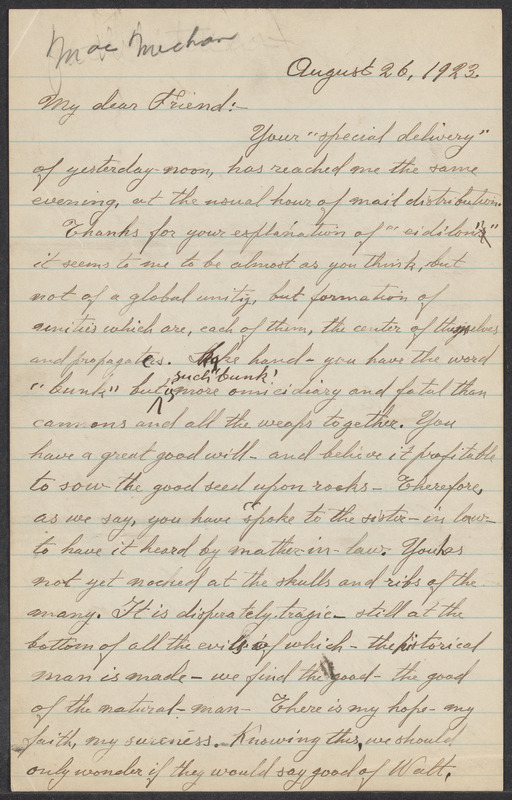 Mac Mechan
August 26, 1923.
My dear Friend:-
Your "special delivery"
of yesterday noon, has reached me the same
evening, at the usual hour of mail distribution.
Thanks for your explanation of "eidilons"
it seems to me to be almost as you think, but
not of a global unity, but formation of
unities which are, each of them, the center of themselves
and propagates. hand - you have the word
"bunk" but is such "bunk" more omicidiary and fatal than
cannons and all the weaps together. You
have a great good will - and believe it profitable
to sow the good seed upon rocks - Therefore,
as we say, you have "spoke to the sister-in law-
to have it heard by mother-in-law. You has
not yet noched at the skulls and ribs of the
many. It is disperately tragic - still at the
bottom of all the evils of which - the historical
man is made - we find the good - the good
of the natural-man - There is my hope - my
faith, my sureness. Knowing this, we should
only wonder if they would say good of Walt,